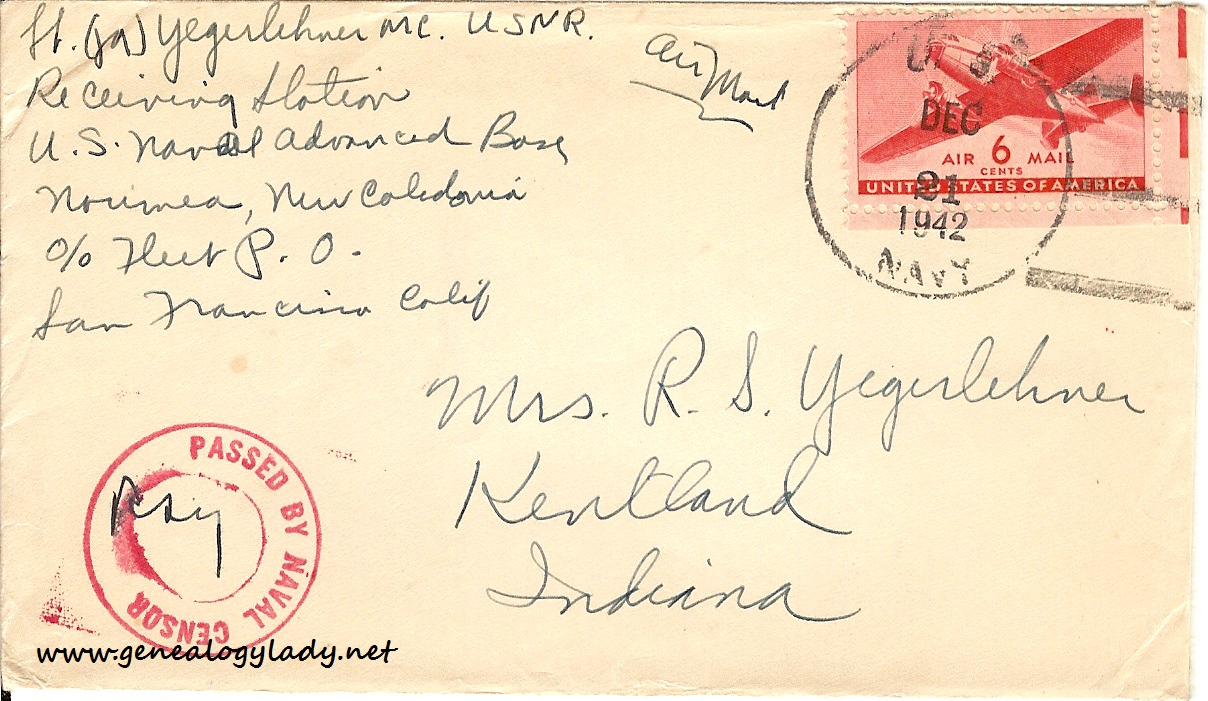 Lt. (jg) Yegerlehner MC. U S N R.
Receiving Station
U. S. Naval Advanced Base
Noumea, New Caledonia
c/o Fleet P. O.
San Francisco Calif
Air Mail
U. S.
DEC
21
1942
NAVY
AIR 6 MAIL
CENTS
UNITED STATES OF AMERICA
Mrs. R. S. Yegerlehner
Kentland
Indiana
PASSED BY NAVAL CENSOR
RSY
www.genealogylady.net